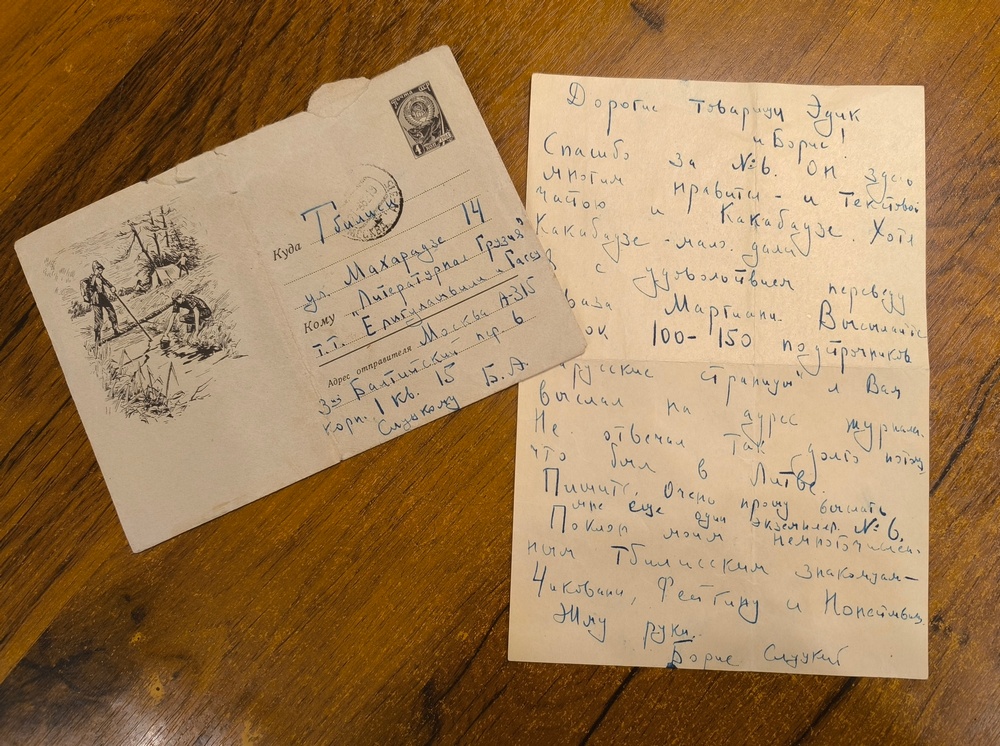 4
Куда Тбилиси
ул. Махарадзе 14
"Литературная Грузия"
Кому
т.т. Елигулашвили и Гассу
Адрес отправителя Москва А-315
3ий Балтийский пер. 6
корп. 1 кв. 15 Б. А.
Слуцкому
Дорогие товарищи Эдик
и Борис!
Спасибо за №6. Он здесь
многим нравится - и текстовой
частью и Какабадзе. Хотя
Какабадзе - мало дали
с удовольствием переведу
Мартиани. Высылайте
100-150 подстрочников
русские страницы" я Вам
выслал на адрес журнала.
Не отвечал так долго потому,
что был в Литве.
Пишите. Очень прошу выслать
мне еще один экземпляр №6.
Поклон моим немногочислен-
ным тбилисским знакомцам -
Чиковани, Фейгину и
Жму руки.
Борис Слуцкий